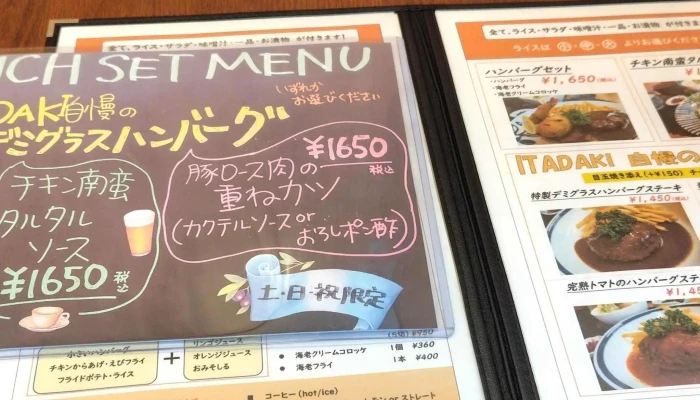 全て、ライス・サラダ・味噌汁・一品・お漬物 が付きます!
NCH SET MENU
いずれか
お選びください
DAKI自慢の
デミグラスハンバーグ
チキン南蛮
タルタル
ソース
¥1650 税込
¥1650 税込
豚ロース肉の
重ねカツ
(カクテルソース or おろしポン酢)
土・日・祝限定
小さいハンバーグ
チキンからあげ・えびフライ
フライドポテト・ライス
+
リンゴジュース
オレンジジュース
おみそしる
(5切) ¥950
● 海老クリームコロッケ 1個 ¥360
● 海老フライ 1本 ¥400
コーヒー (hot/ice)
or ストレート
全て、ライス・サラダ・味噌汁・一品・お漬物
ライスは
よりお選びくださ
ハンバーグセット
・ハンバーグ
・海老フライ
・海老クリームコロッケ
¥1,650(税込)
チキン南蛮タル
ITADAKI 自慢の
目玉焼き添え(+¥150) チー
特製デミグラスハンバーグステーキ
¥1,450(税込)
完熟トマトのハンバーグステ
¥1,45